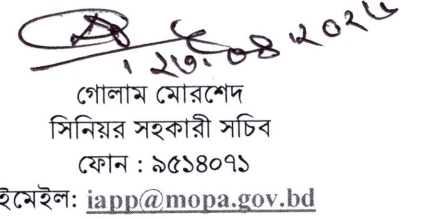 ২৩.০৪.২০২৫
গোলাম মোরশেদ
সিনিয়র সহকারী সচিব
ফোন : ৯৫১৪০৭১
ইমেইল: iapp@mopa.gov.bd